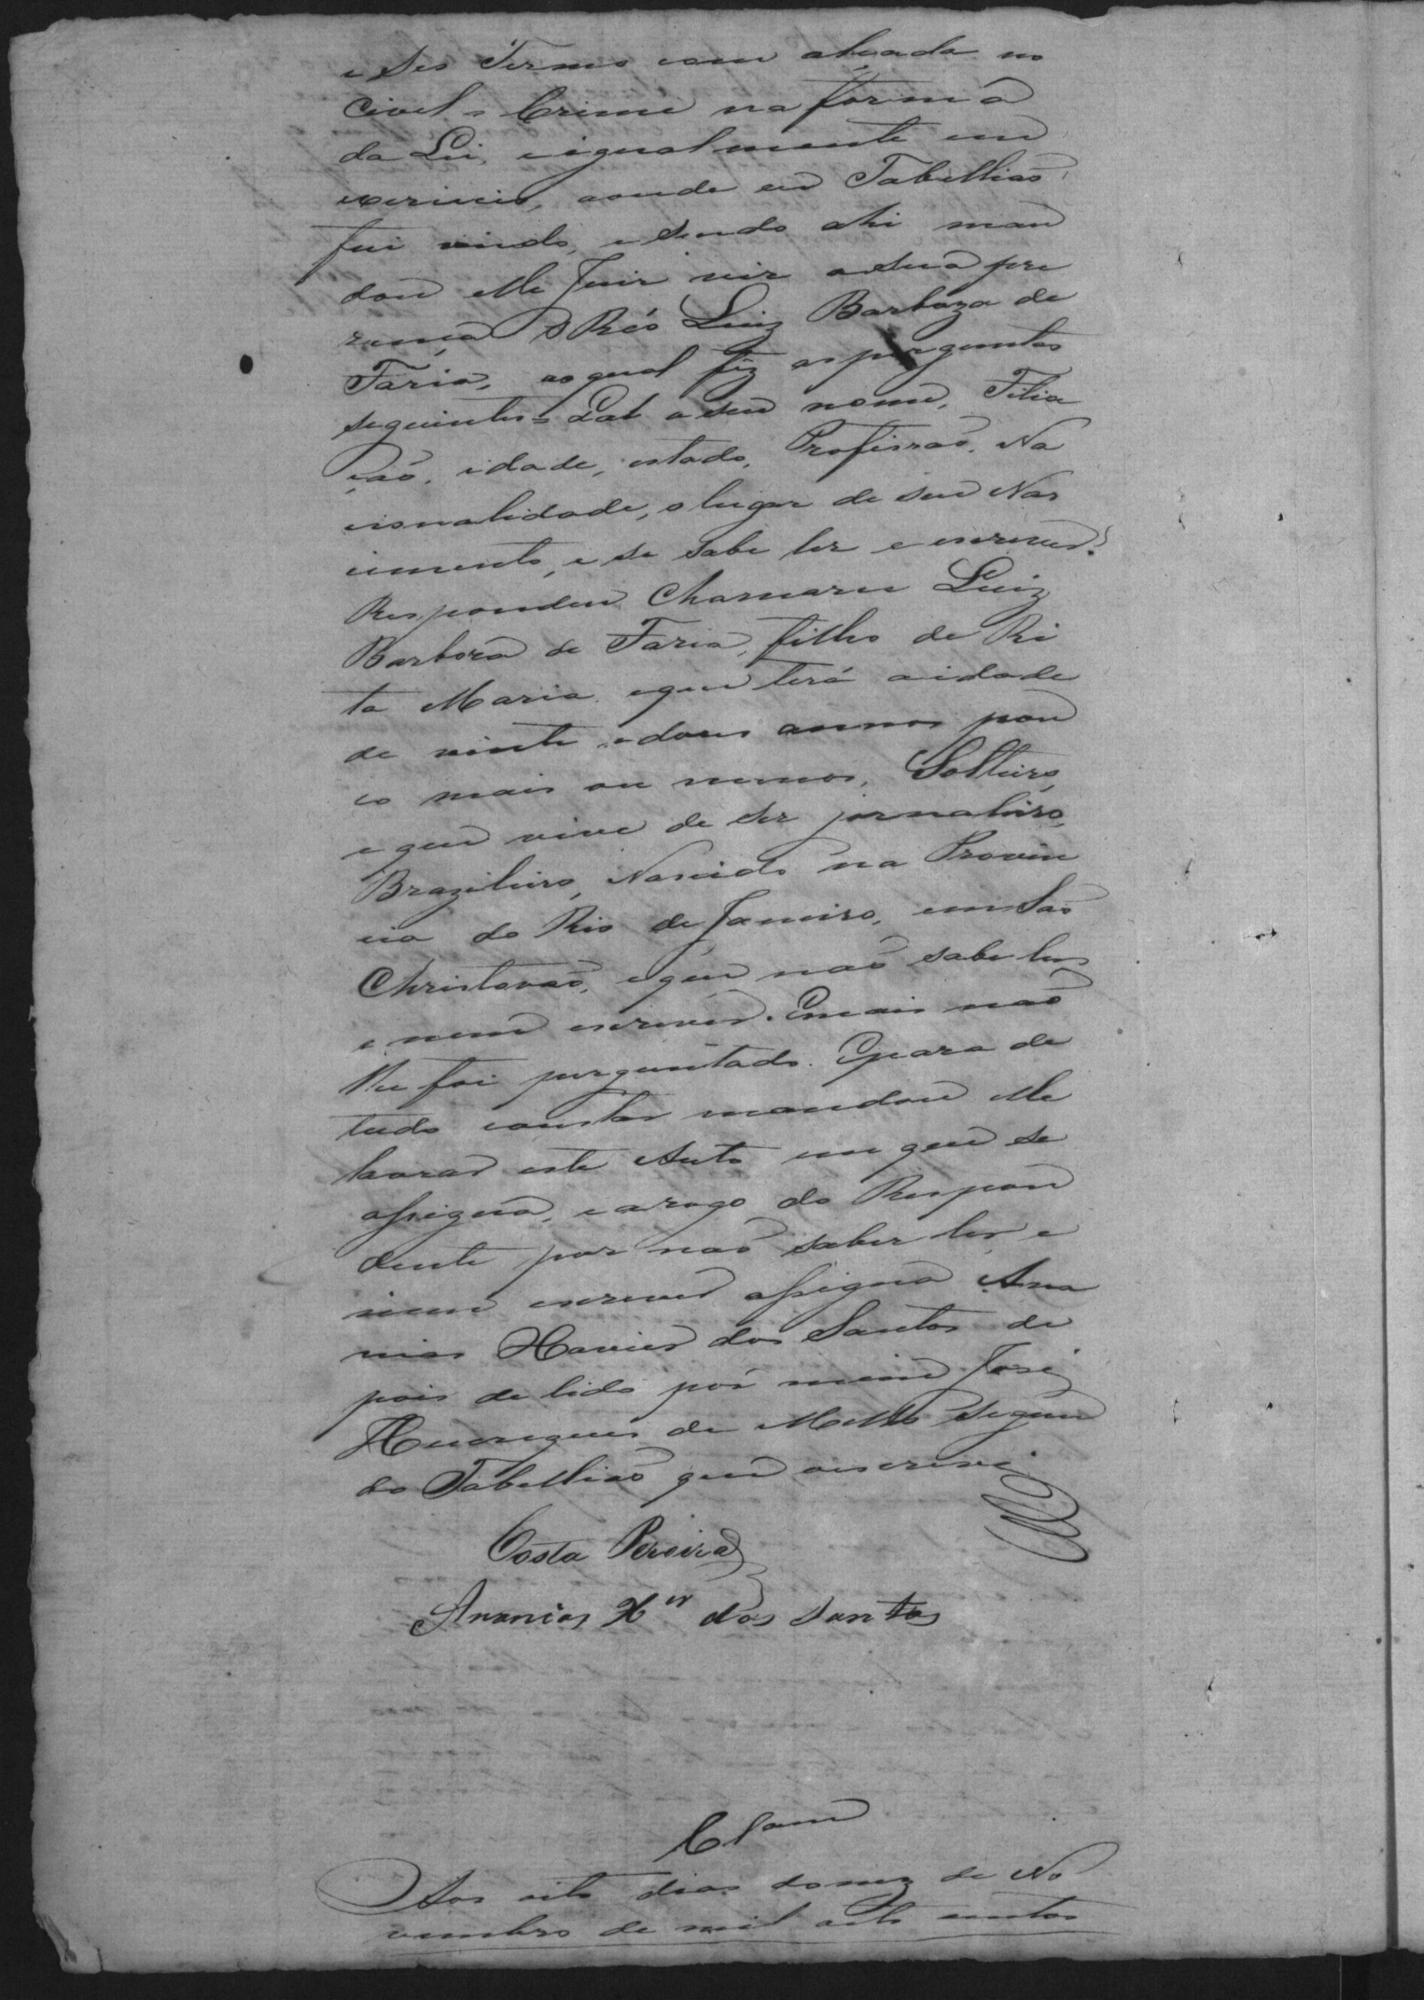 e Seo Termo com alçada no
Civel e Crime na forma
da Lei, e igualmente em
exercicio, aonde eu Tabellião
fui vindo, e sendo ahi man
dou elle Juiz vir a sua pre
zença o Réo Luiz Barboza de
Faria, ao qual fez as perguntas
seguintes = Qal o seu nome, Filia
ção, idade, estado, Profissão, Na
cionalidade, o lugar de seu Nas
cimento, e se sabe ler e escrever?
Respondeu Chamarse Luiz
Barboza de Faria, filho de Ri
ta Maria, e que terá a idade
de vinte e dous annos pou
co mais ou menos, Solteiro,
e que vive de ser jornaleiro,
Brazileiro, Nascido na Provin
cia do Rio de Janeiro, em São
Christovão, e que não sabe ler
e nem escrever. E mais não
lhe foi perguntado. E para de
tudo constar mandou elle
lavrar este Auto em que se
assigna, e a rogo do Respon
dente por não saber ler e
nem escrever assigna Ana
nias Xavier dos Santos de
pois de lido por mim José
Henriques de Mello Segun
do Tabellião que o escrevi
Costa Pereira
Ananias X.er dos Santos
Clam
Aos oito dias do mez de No
vembro de mil oito centos